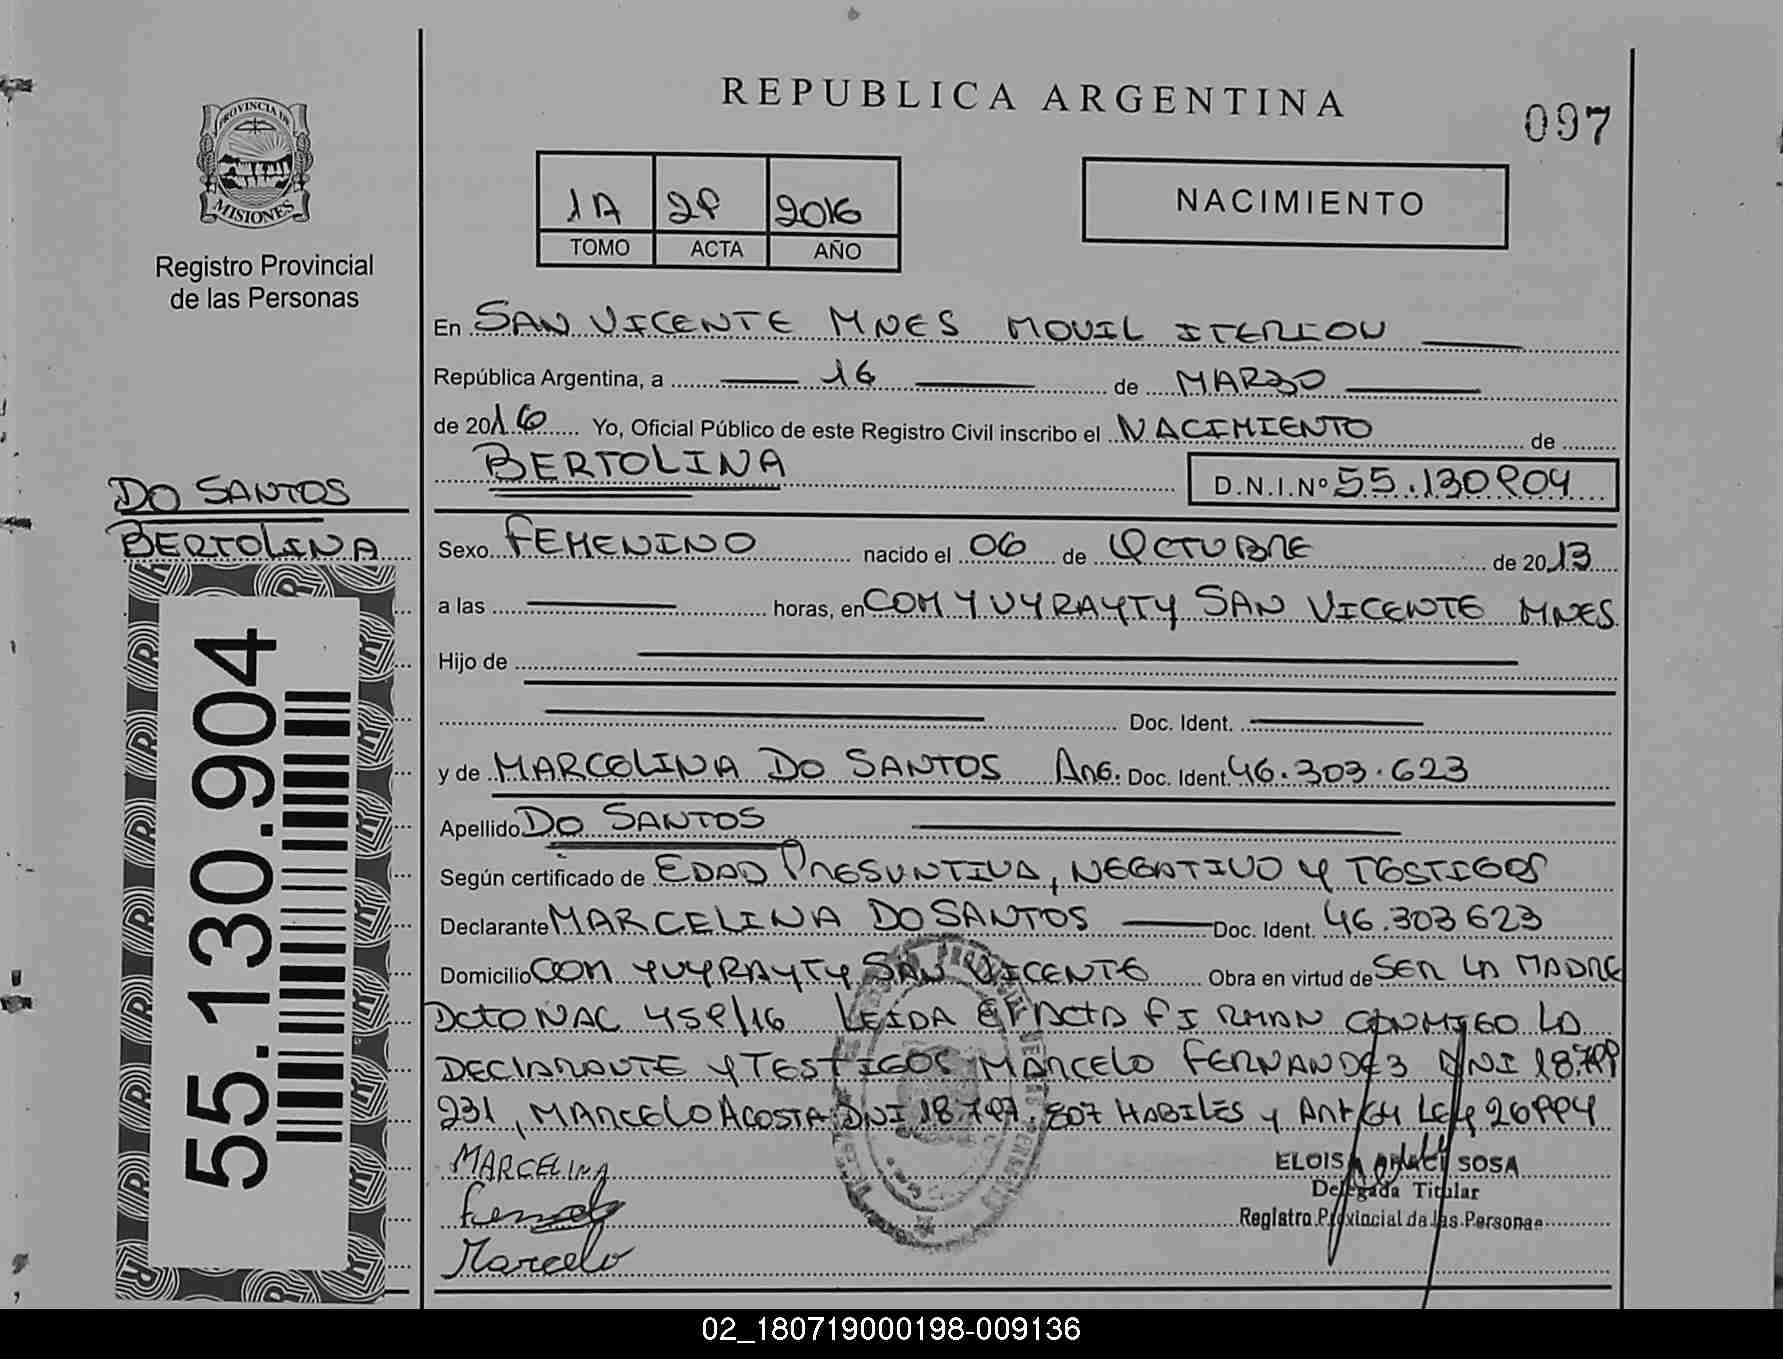 REPUBLICA ARGENTINA
097
PROVINCIA DE
MISIONES
Registro Provincial
de las Personas
1A 29 2016
TOMO ACTA AÑO
NACIMIENTO
En SAN VICENTE MNES MOVIL ITERIOU
República Argentina, a 16 de MARZO
de 2016 Yo, Oficial Público de este Registro Civil inscribo el NACIMIENTO de
BERTOLINA
D.N.I.Nº 55.130904
DO SANTOS
BERTOLINA
55.130.904
Sexo FEMENINO nacido el 06 de OCTUBRE de 2013
a las horas, en COM YVYRAYTY SAN VICENTE MNES
Hijo de
Doc. Ident.
y de MARCOLINA DO SANTOS ARG. Doc. Ident. 46.303.623
Apellido DO SANTOS
Según certificado de EDAD PRESUNTIVA, NEGATIVO Y TESTIGOS
Declarante MARCELINA DO SANTOS Doc. Ident. 46.303623
Domicilio COM YVYRAYTY SAN VICENTE Obra en virtud de SER LA MADRE
DCTO NAC 459/16 LEIDA EL ACTA FIRMAN CONMIGO LA
DECLARANTE Y TESTIGOS MARCELO FERNANDEZ DNI 18.799
231, MARCELO ACOSTA DNI 18.797.807 HABILES Y ART 64 LEY 26994
MARCELINA
Marcelo
ELOISA SOSA
Delegada Titular
Registro Provincial de las Personas
02_180719000198-009136